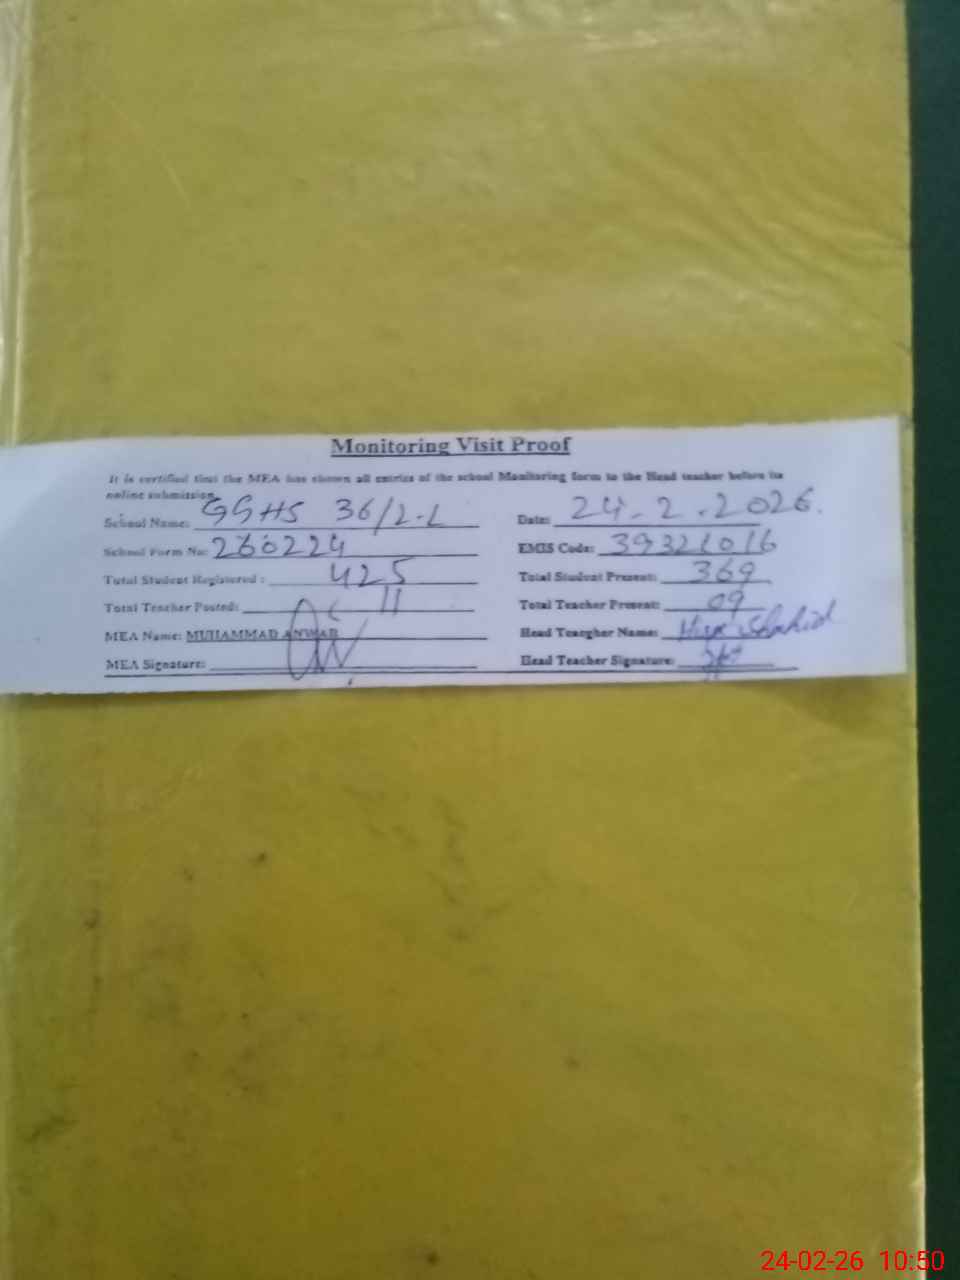 Monitoring Visit Proof
It is certified that the MEA has shown all entries of the school Monitoring form to the Head teacher before its
online submission.
School Name: GGHS 36/2-L Date: 24-2-2026.
School Form No: 260224 EMIS Code: 39321016
Total Student Registered : 425 Total Student Present: 369
Total Teacher Posted: 11 Total Teacher Present: 09
MEA Name: MUHAMMAD ANWAR Head Teacher Name: Shahid
MEA Signature: Head Teacher Signature:
24-02-26 10:50